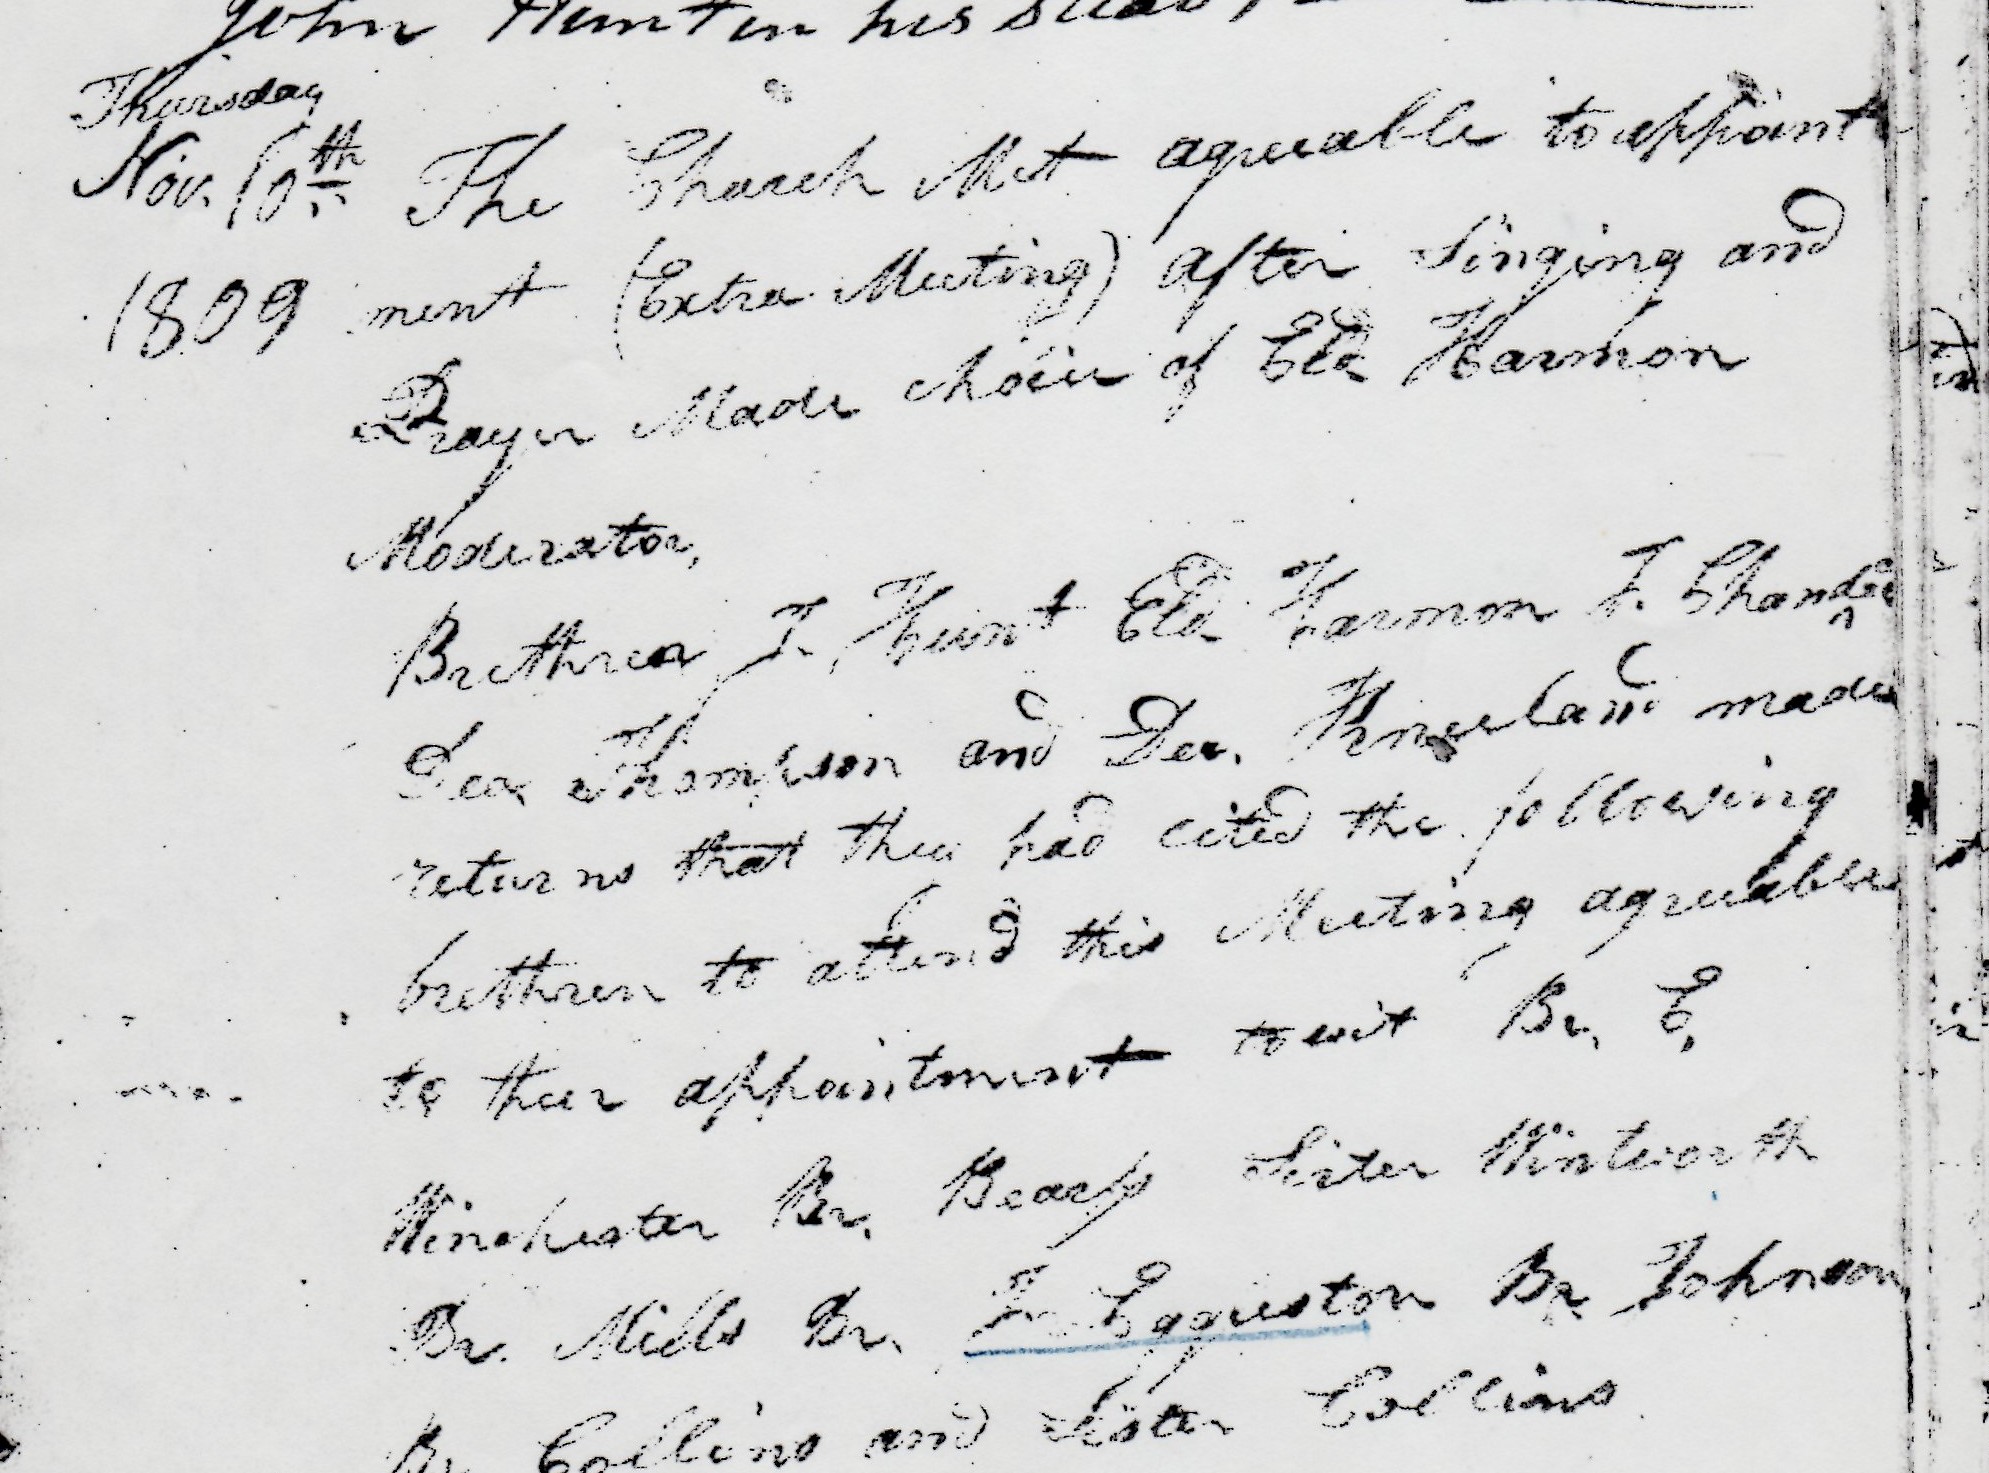 John Hunten his
Thursday
Nov. 10th The Church Met agreeable to appoint
1809 ment (Extra Meeting) after Singing and
Prayer Made choice of Eld Harmon
Moderator,
Brethren J, Hunt Eld Harmon J. Chandler
Dea Thompson and Dea. Kneeland made
returns that they had cited the following
brethren to attend this Meeting agreeable
to their appointment to wit Br, E,
Winchester Br, Bearss Sister Wintworth
Br. Mills Br. J. Eggleston Br Johnson
Br Collins and Sister Collins